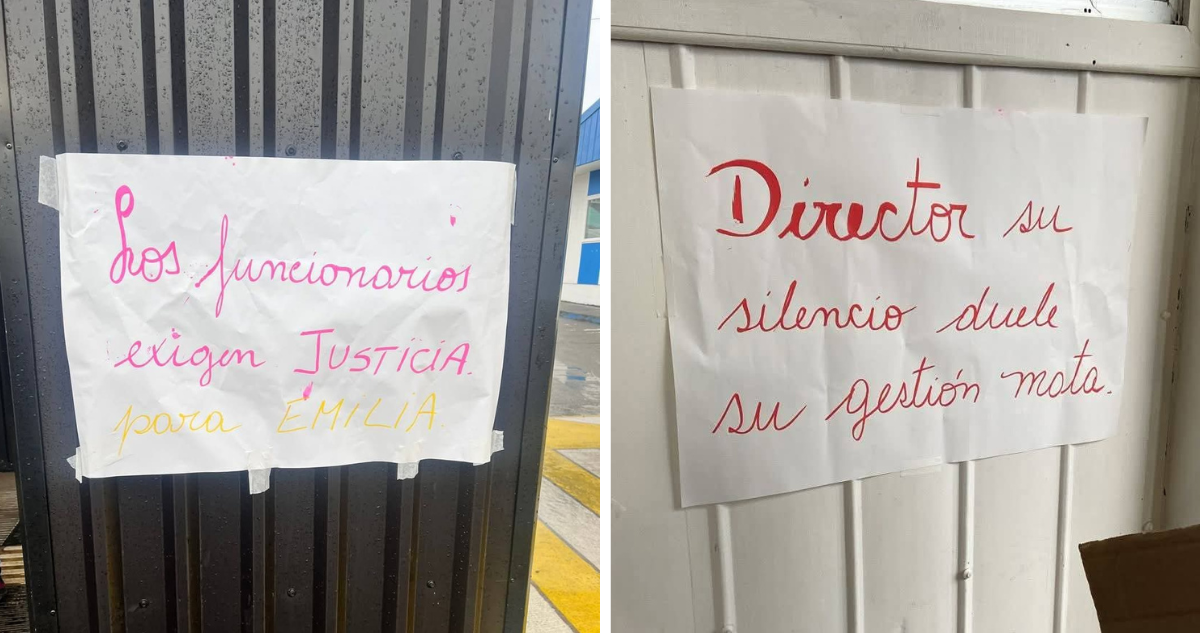 Los funcionarios
exigen JUSTICIA.
para EMILIA.
Director su
silencio duele
su gestión mata.